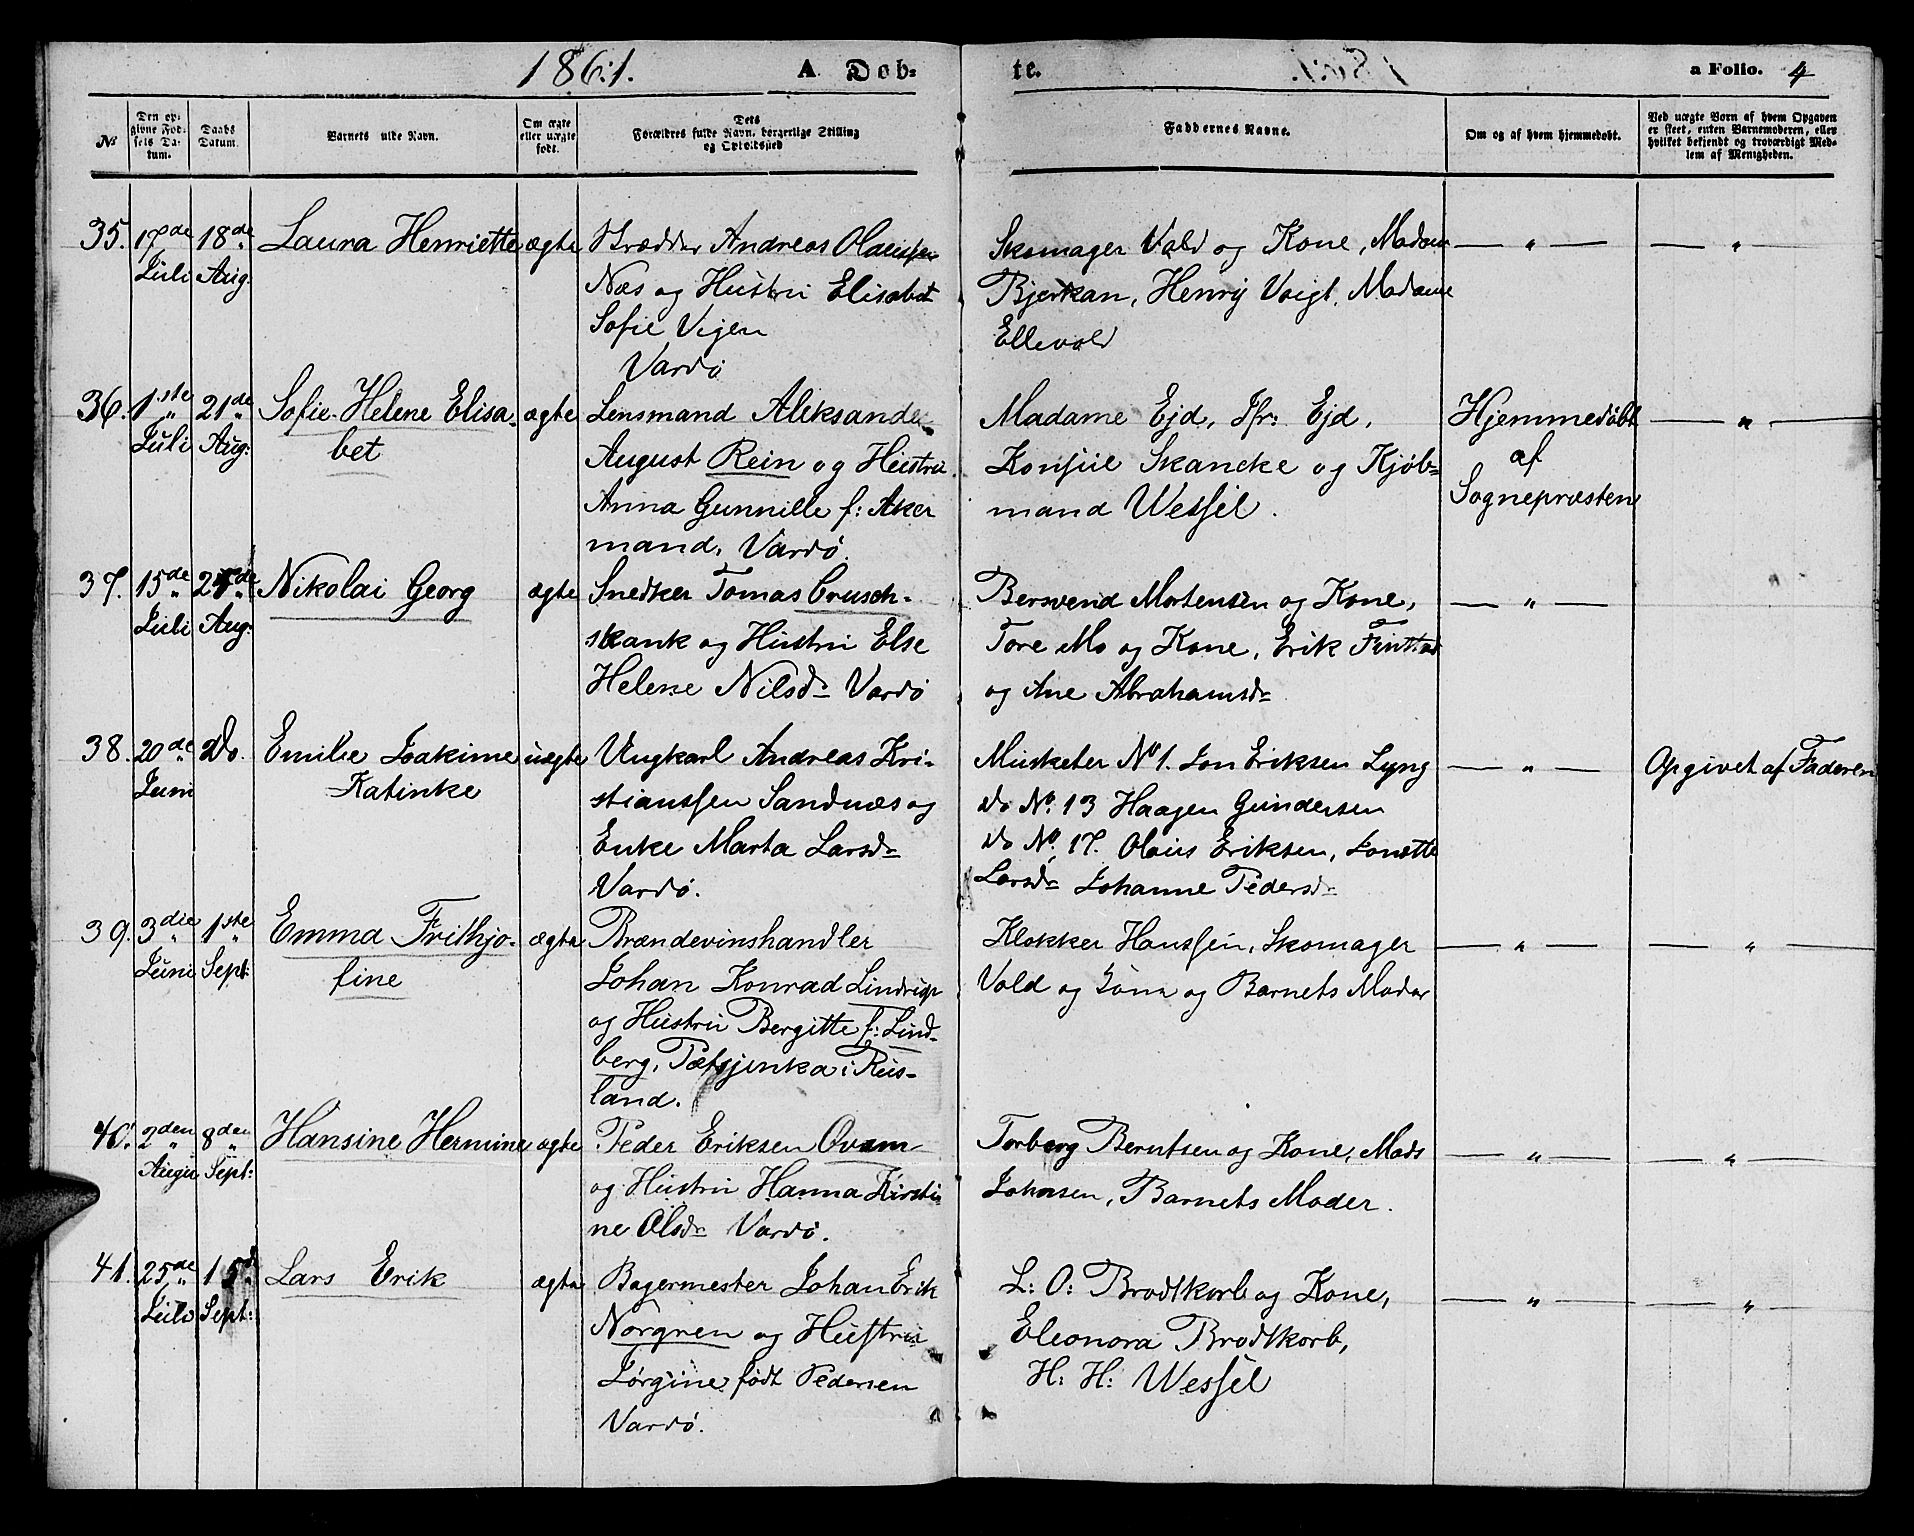 1861. A Døb-
te. a Folio. 4
No
Den op-
givne Fød-
sels Da-
tum.
Daabs
Datum.
Barnets fulde Navn.
Om ægte
eller uægte
født.
Dets
Forældres fulde Navn, borgerlige Stilling
og Opholdssted
Faddernes Navne.
Om og af hvem hjemmedøbt.
Ved uægte Børn af hvem Opgaven
er skeet, enten Barnemoderen, eller
hvilket bekjendt og troværdigt Med-
lem af Menigheden.
35. 17de Juli 18de Aug. Laura Henriette ægte
Skrædder Andreas Olaussen
Næs og Hustru Elisabet
Sofie Vigen
Vardø
Skomager Vold og Kone, Madam
Bjerkan, Henrij Voigt, Madame
Ellevold
— " — — " —
36. 1ste Juli 21de Aug: Sofie Helene Elisa-
bet ægte
Lensmand Aleksander
August Rein og Hustru
Anna Gunnille f: Aker
mand, Vardø.
Madame Ejd, Jfr: Ejd,
Konsul Skancke og Kjøb-
mand Wessel.
Hjemmedøbt
af
Sognepræsten
— " —
37. 15de Juli 25de Aug: Nikolai Georg ægte
Snedker Tomas Crusch-
skank og Hustru Else
Helene Nilsdr Vardø
Bersvend Mortensen og Kone,
Tore Mo og Kone, Erik
og Ane Abrahamsdr
— " —
38. 20de Juni Do. Emilie Joakime
Katinke uægte
Ungkarl Andreas Kri-
stianssen Sandnæs og
Enke Marta Larsdr
Vardø.
Musketer No 1. Jon Eriksen Lyng
Do No. 13 Haagen Gundersen
Do No. 17. Olaus Eriksen, Jonette
Larsdr Johanne Pedersdr
— " —
Opgivet af Faderen
39. 3die Juni 1ste Sept: Emma Frithjo-
fine ægte
Brændevinshandler
Johan Konrad
og Hustru Bergitte f: Lind-
berg, Pætsjenka i Rus-
land.
Klokker Hanssen, Skomager
Vold og Kone og Barnets Moder
— " — — " —
40. 2den Augu 8den Sept: Hansine Hermine ægte
Peder Eriksen Qvam
og Hustru Hanna Kirsti-
ne Olsdr Vardø.
Torberg Berntsen og Kone, Mads
Johnsen, Barnets Moder.
— " — — " —
41. 25de Juli 15d Sept: Lars Erik ægte
Bagermester Johan Erik
Norgren og Hustru
Jørgine født Pedersen
Vardø.
L: O: Brodtkorb og Kone,
Eleonora Brodtkorb,
H: H: Wessel
— " — — " —